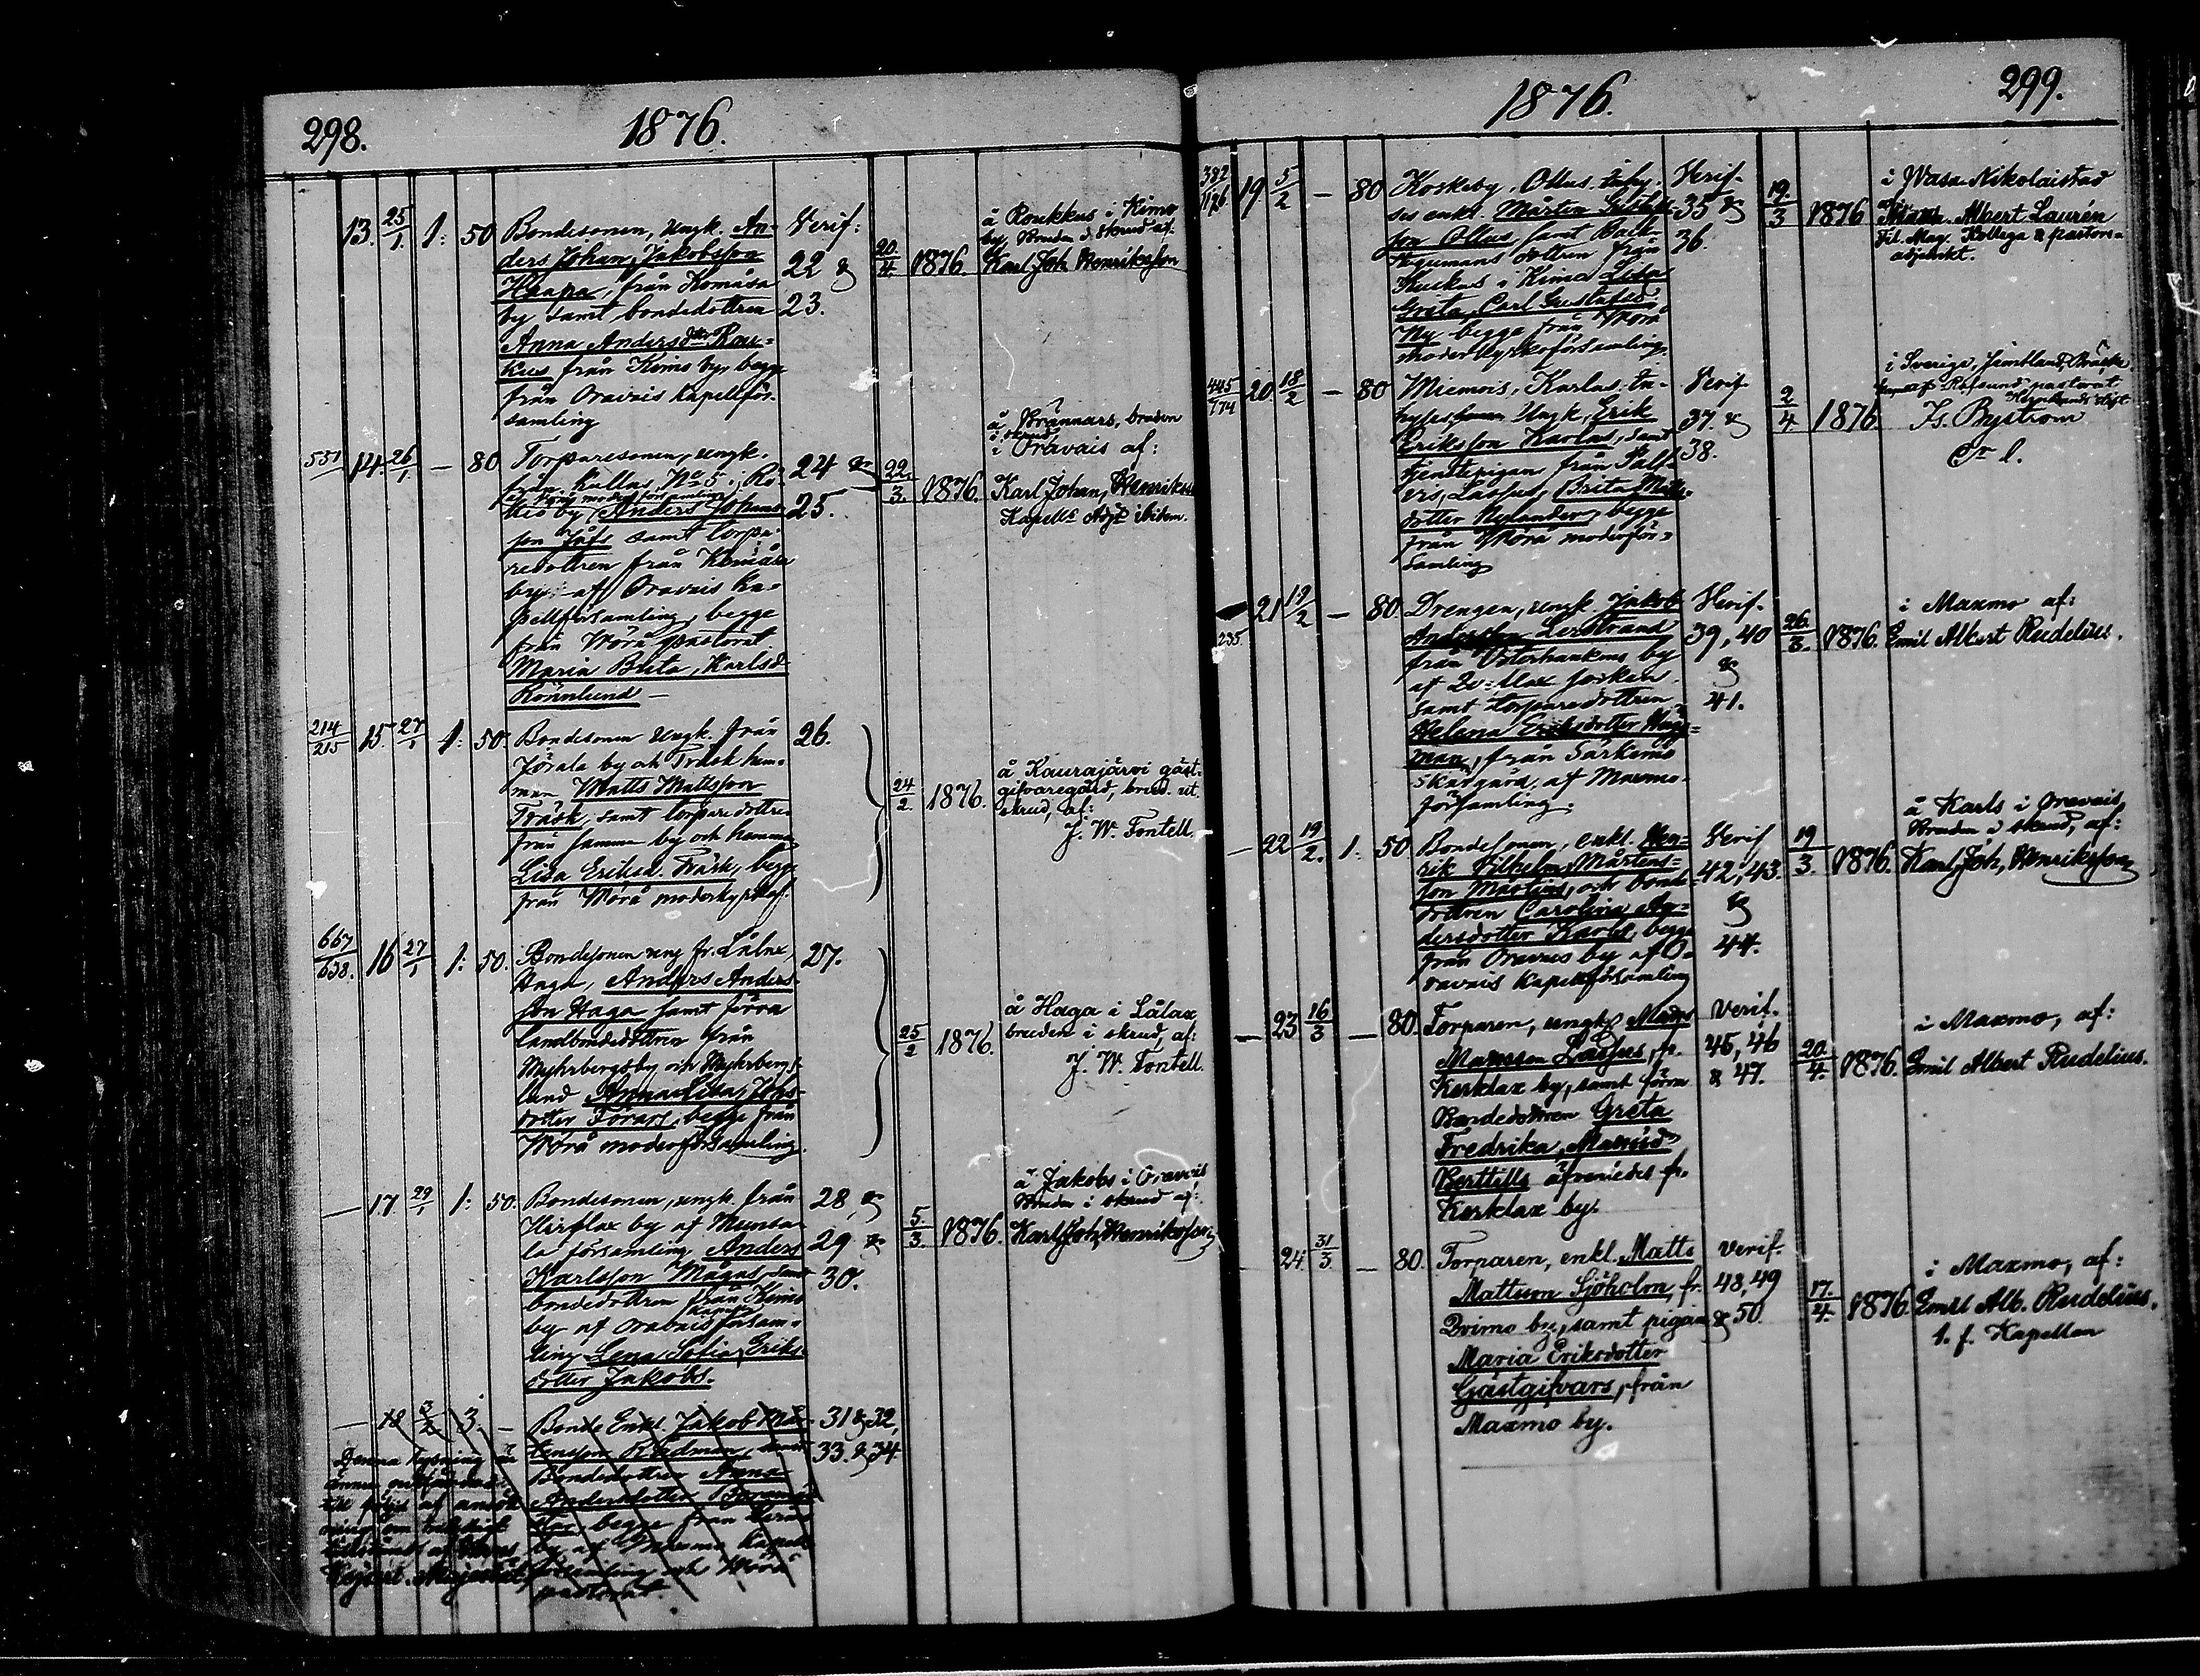 298.
1876.
13. 25/1. 1: 50 Bondesonen, ungk. An-
ders Johan, Jakobsson
Haapa, från Komåsa
by samt bondedottren
Anna Andersdtr Rau-
kus från Kimo by, begge
från Oravais Kapellför-
samling
Verif:
22 &
23.
20/4 1876
å Roukkus i Kimo
by, Bruden i skrud af:
Karl Joh Henriksson
551 14. 26/1. — 80 Torparesonen, ungk.
från Kallas, No 5 i Rö-
kiö by, Anders Johans-
son Jåfs samt torpa-
redottren från Komåsa
by af Oravais ka-
pellförsamling, begge
från Wörå pastorat
Maria Brita, Karlsd.
Rönnlund —
24 &
25.
22./3. 1876.
å Brännars, bruden
i skrud
i Oravais af:
Karl Johan, Henriksson
Kapells Adjt ibidem.
214/215 15. 27/1 1: 50. Bondesonen ungk. från
Jörala by och Träsk hem-
man Matts Mattsson
Träsk, samt torparedottren
från samma by och hemman
Lisa Eriksd. Träsk, begge
från Wörå moderkyrkof.
26.
24/2. 1876.
å Kaurajärvi gäst-
gifvaregård, brud. ut.
skrud, af:
J. W. Fontell.
667/638. 16 27/1 1: 50. Bondesonen ung fr. Lålax,
Haga, Anders Anders-
son Haga samt förra
landbondedottren från
Myhrbergsby och Myhrberg
lund Anna Lisa, Johs-
dotter, Forars, begge från
Wörå moderförsamling.
27.
25/2 1876.
å Haga i Lålax
bruden i skrud, af:
J. W. Fontell.
— 17. 29/1 1: 50. Bondesonen, ungk. från
Hirflax by af Munsa-
la församling Anders
Karlsson Mågus, samt
bondedottren från Kimo
by af Oravais kapell försam-
ling Lena Sofia, Eriks-
dotter Jakobs.
28, &
29 &
30.
5/3. 1876.
å Jakobs i Oravais
Bruden i skrud af:
Karl Joh, Henriksson
— 18 3/2 3. — Bonde Enkl. Jakob Mår-
tensson Rödman, samt
Bondedottren Anna
Andersdotter
begge från
by af Maxmo Kapell
församling och Wörå
pastorat.
31 & 32,
33. & 34.
Denna lysning är
af
Kejserl. Majestät
1876.
299.
382 19 5/2 — 80 Koskeby, Ollus, inhy-
ses enkl. Mårten Gustafs-
son Ollus samt Back-
stugumans dottren från
Kuckus i Kimo Lisa
Greta, Carl Gustafsd.
Ny begge från Wörå
moderkyrkoförsamling.
Verif.
35 &
36.
19./3 1876
i Wasa Nikolaistad
af Albert Laurén
Fil. Mag. Kollega & pastors-
adjunkt.
445/774 20 18/2 — 80 Miemois, Karlas, In-
hyses Ungk. Erik
Eriksson Karlas, samt
tjenstepigan från Palf-
ers, Lassus, Brita Matts-
dotter Nylander, begge
från Wörå moderför-
samling
Verif.
37. &
38.
2/4 1876.
i Sverige, Jemtland, Bräcke
af Refsunds pastorat
Hernösands stift
Js. Byström
Cr l.
235. 21 12/2 — 80. Drengen, ungk. Jakob
Andersson Lerstrand
från Österhankmo by
af Qveflax socken
samt torparedottren
Helena Eriksdotter Hag-
man, från Särkimo
skärgård, af Maxmo
församling.
Verif.
39, 40
&
41.
26./3. 1876.
i Maxmo af:
Emil Albert Rudelius.
— 22 19/2. 1: 50 Bondesonen, enkl. Hen-
rik Vilhelm, Mårtens-
son Mastus, och bonde-
dottren Carolina, An-
dersdotter Karls, begge
från Oravais by af O-
ravais Kapellförsamling
Verif
42, 43.
&
44.
19/3. 1876.
å Karls i Oravais,
Bruden i skrud, af:
Karl, Joh, Henriksson
— 23 16/3 — 80. Torparen, ungk. Mats
Matsson Lassus, fr.
Kerklax by, samt förra
Bondedottren Greta
Fredrika, Matsd.
Berttills äfvenledes fr.
Kerklax by.
Verif.
45, 46
& 47.
20./4. 1876.
i Maxmo, af:
Emil Albert Rudelius.
24. 31/3 — 80. Torparen, enkl. Matts
Mattsson Sjöholm, fr.
Qvimo by, samt pigan
Maria Eriksdotter
Gästgifvars, från
Maxmo by.
Verif.
48, 49
& 50.
17./4. 1876.
i Maxmo, af:
Emil Alb. Rudelius.
t. f. Kapellan